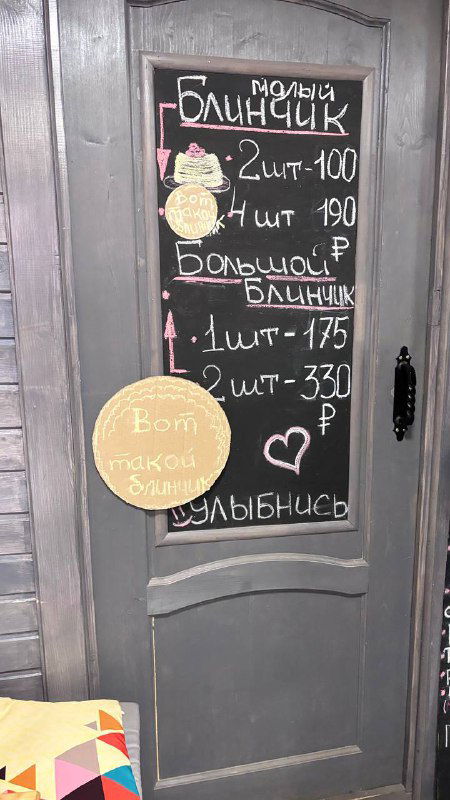 малый
Блинчик
2шт-100
Вот
такой
блинчик
4 шт 190
₽
Большой
Блинчик
1шт-175
2шт-330
₽
Вот
такой
блинчик
Улыбнись